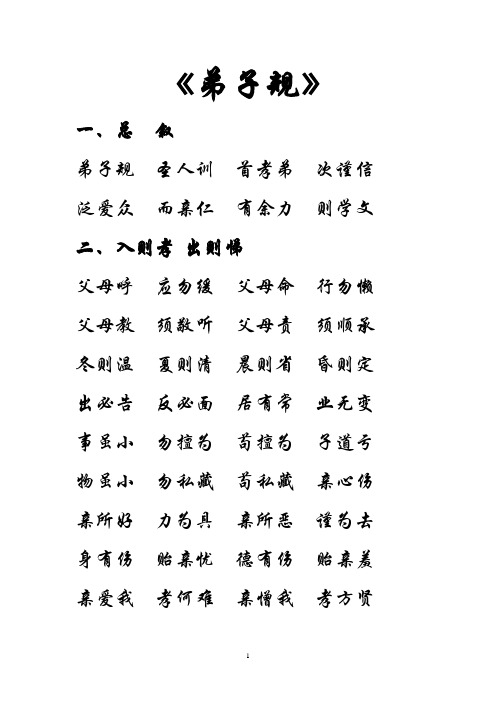 《弟子规》
一、总 叙
弟子规 圣人训 首孝弟 次谨信
泛爱众 而亲仁 有余力 则学文
二、入则孝 出则悌
父母呼 应勿缓 父母命 行勿懒
父母教 须敬听 父母责 须顺承
冬则温 夏则清 晨则省 昏则定
出必告 反必面 居有常 业无变
事虽小 勿擅为 苟擅为 子道亏
物虽小 勿私藏 苟私藏 亲心伤
亲所好 力为具 亲所恶 谨为去
身有伤 贻亲忧 德有伤 贻亲羞
亲爱我 孝何难 亲憎我 孝方贤
1